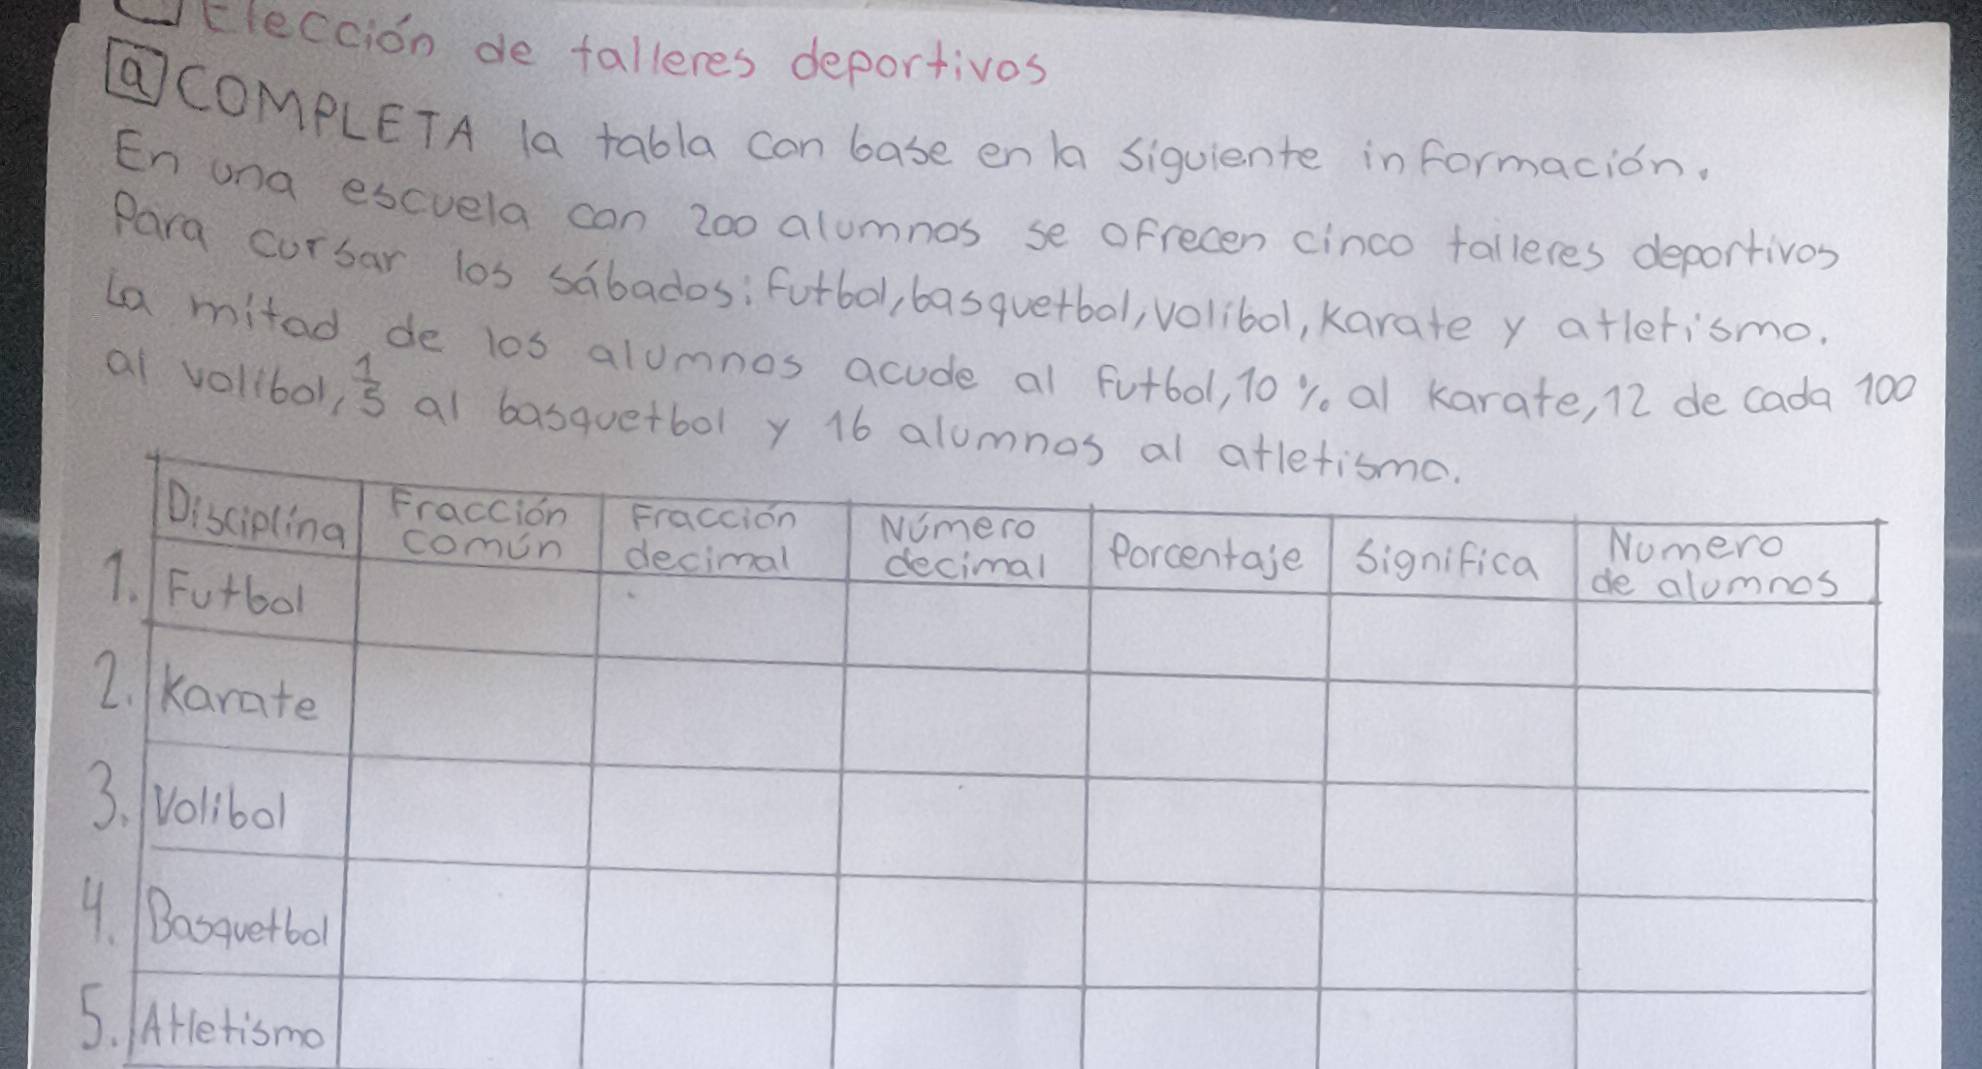 Elección de talleres deportivos
a COMPLETA la tabla con base en la siguiente información.
En una escuela con 200 alumnos se ofrecen cinco talleres deportivos
Para cursar los sábados: futbol, basquetbol, volibol, karate y atletismo.
La mitad de los alumnos acude al futbol, 10 % al karate, 12 de cada 100
al volibol, 1/5 al basquetbol y 16 alumnos al atletismo.
Disciplina Fracción común Fracción decimal Número decimal Porcentaje Significa Numero de alumnos
1. Futbol
2. Karate
3. Volibol
4. Basquetbol
5. Atletismo